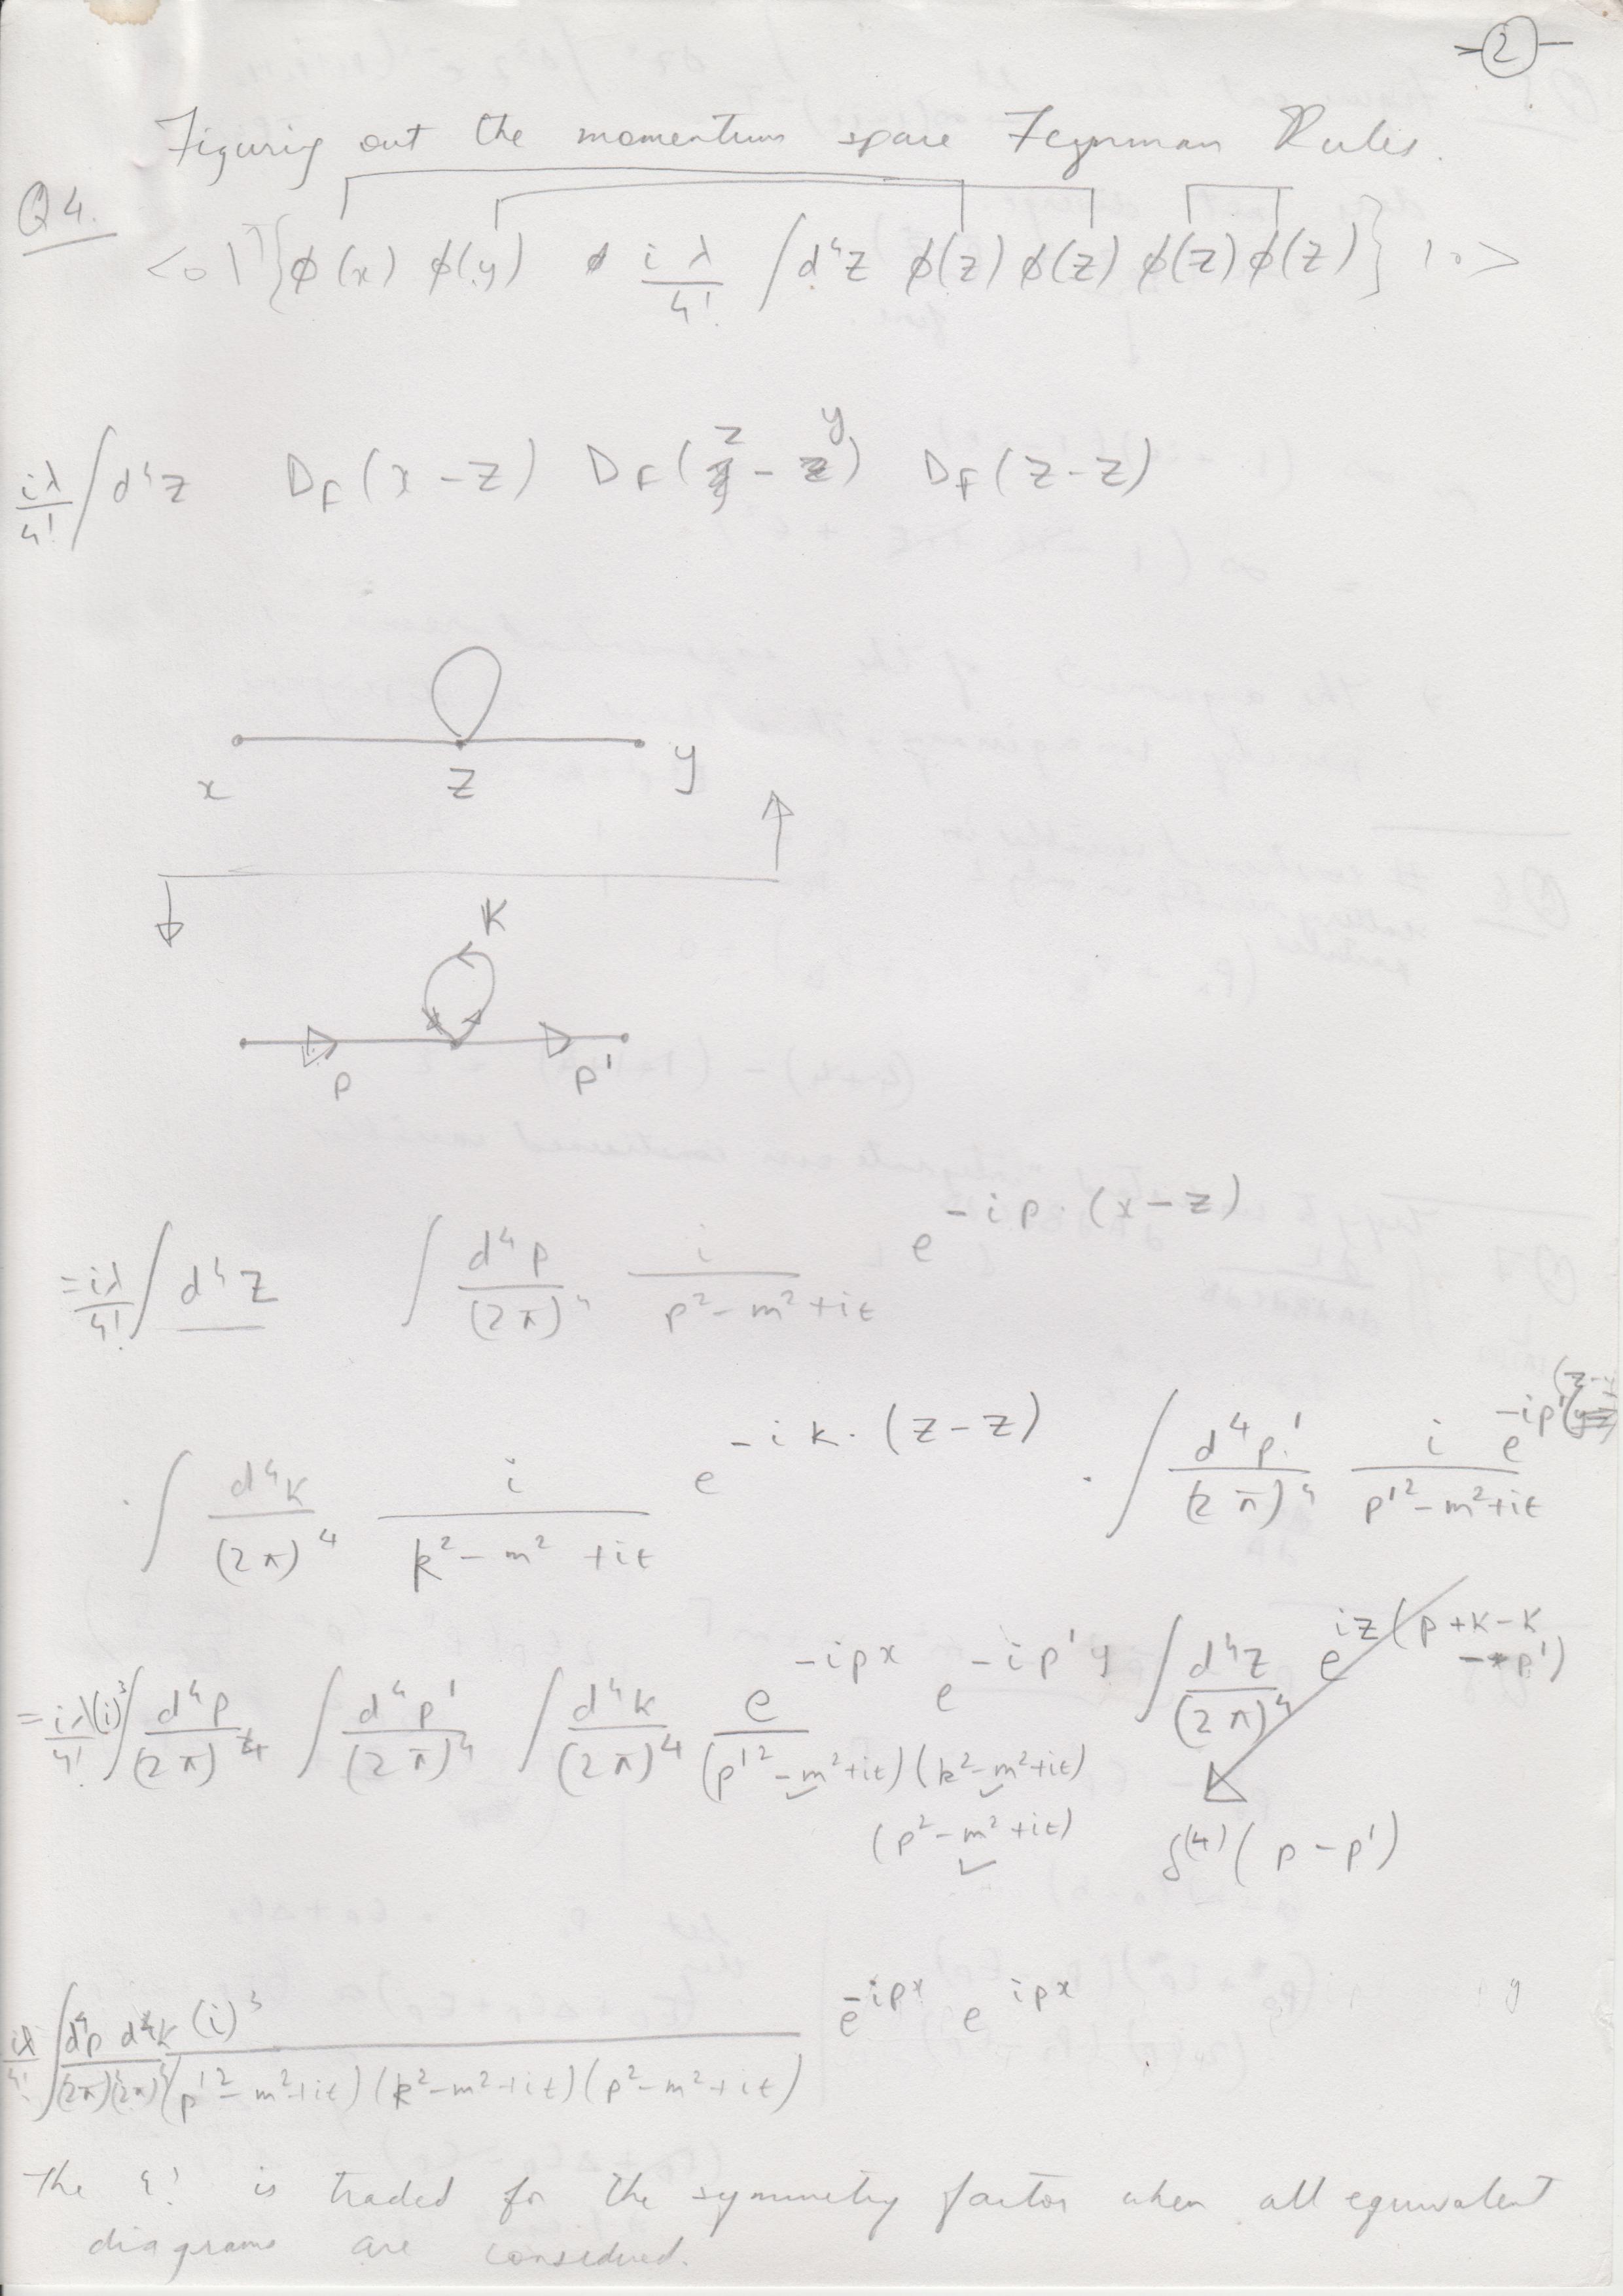 -2-
Figuring out the momentum space Feynman Rules.
Q4.
<0|T{ϕ(x) ϕ(y) iλ/4! ∫d⁴z ϕ(z) ϕ(z) ϕ(z) ϕ(z)} |0>
iλ/4! ∫d⁴z D_F(x-z) D_F(z-y) D_F(z-z)
x z y
K
p p'
= iλ/4! ∫d⁴z ∫ d⁴p/(2π)⁴ i/(p²-m²+iε) e^{-ip·(x-z)}
· ∫ d⁴k/(2π)⁴ i/(k²-m²+iε) e^{-ik·(z-z)} · ∫ d⁴p'/(2π)⁴ i/(p'²-m²+iε) e^{-ip'(z-y)}
= iλ/4! (i)³ ∫ d⁴p/(2π)⁴ ∫ d⁴p'/(2π)⁴ ∫ d⁴k/(2π)⁴ e^{-ipx} e^{-ip'y}/((p'²-m²+iε)(k²-m²+iε)(p²-m²+iε)) ∫ d⁴z/(2π)⁴ e^{iz(p+k-k-p')}
δ⁽⁴⁾(p-p')
iλ/4! ∫ d⁴p d⁴k (i)³/((2π)⁴(2π)⁴(p'²-m²+iε)(k²-m²+iε)(p²-m²+iε)) e^{-ipx} e^{ipx}
The 4! is traded for the symmetry factor when all equivalent
diagrams are considered.